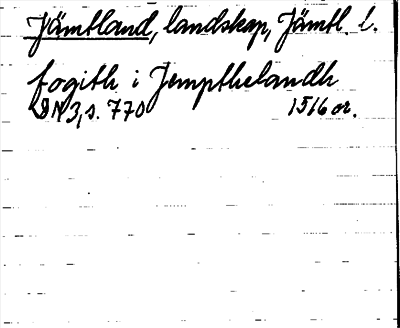 Jämtland, landskap, Jämtl. l.
fogith i Jempthelandh
DN 3, s. 770 1516 or.